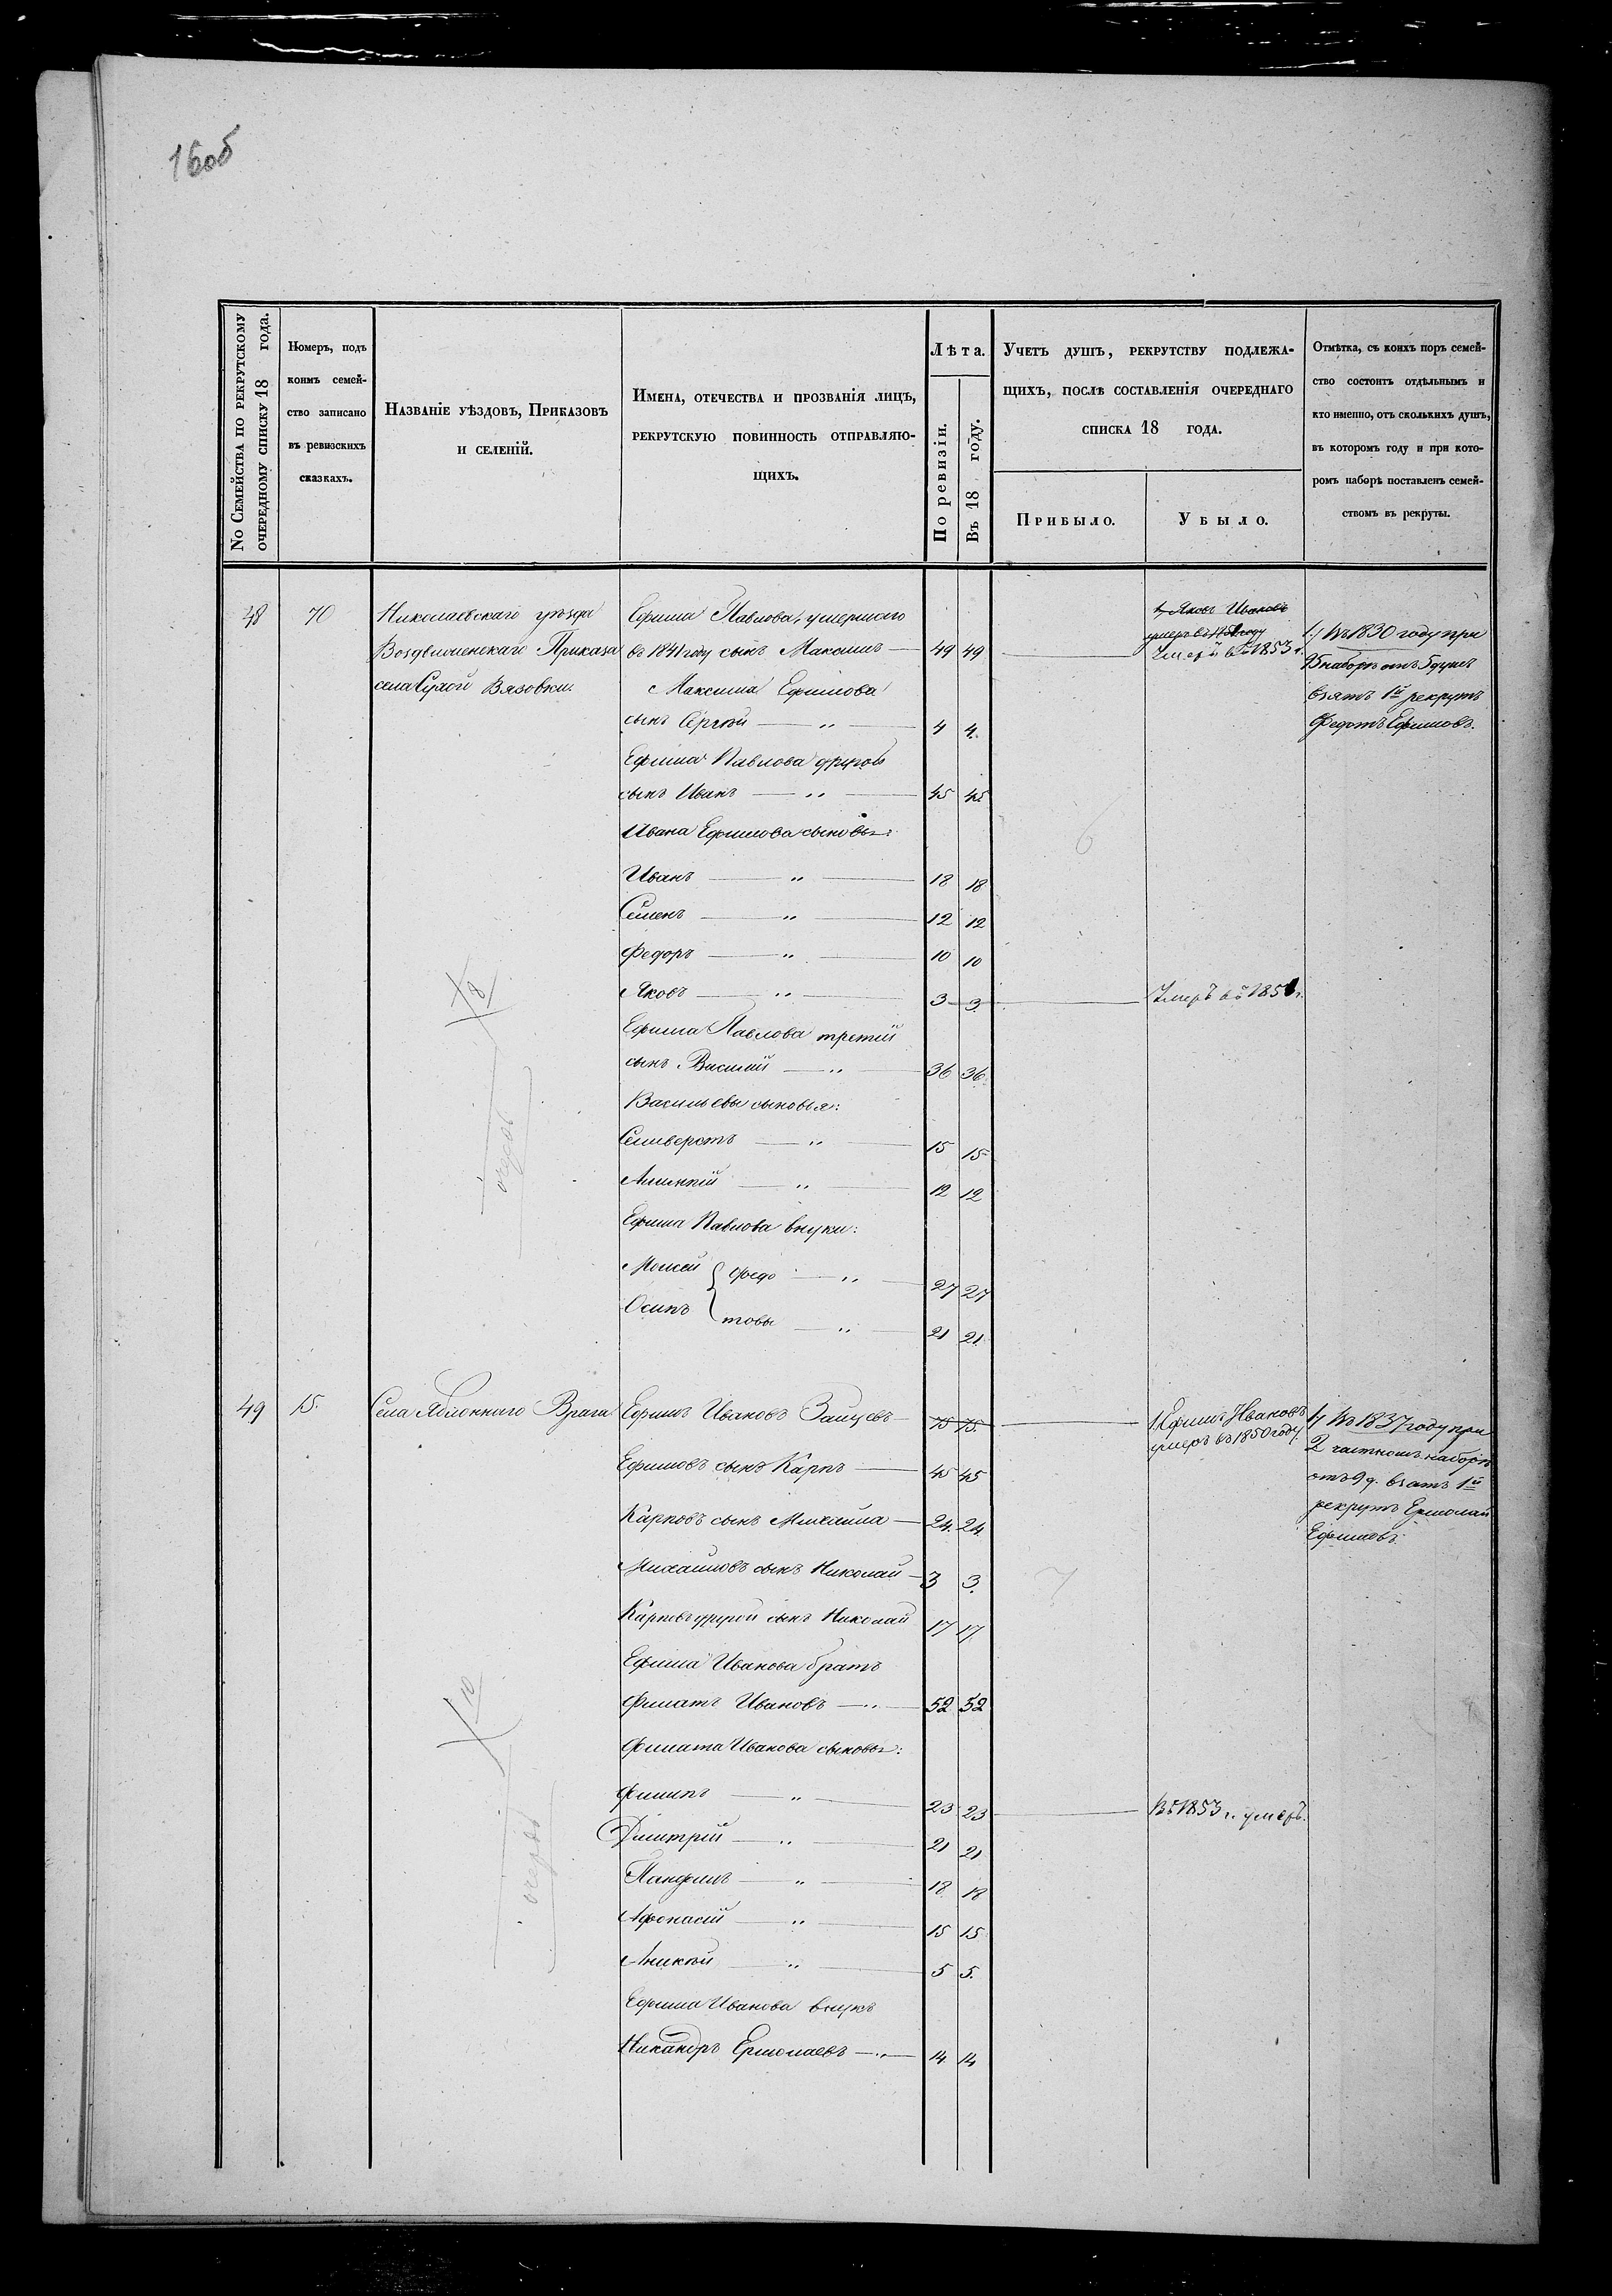 160б
№ Семейства по рекрутскому
очередному списку 18 года.
Номеръ, подъ
коимъ семей-
ство записано
въ ревизскихъ
сказкахъ.
Названіе уѣздовъ, Приказовъ
и селеній.
Имена, отечества и прозванія лицъ,
рекрутскую повинность отправляю-
щихъ.
Лѣта.
По ревизіи.
Въ 18 году.
Учетъ душъ, рекрутству подлежа-
щихъ, послѣ составленія очереднаго
списка 18 года.
Прибыло.
Убыло.
Отмѣтка, съ коихъ поръ семей-
ство состоитъ отдѣльнымъ и
кто именно, отъ сколькихъ душъ,
въ которомъ году и при кото-
ромъ наборѣ поставленъ семей-
ствомъ въ рекруты.
48 70 Николаевскаго уѣзда Ефима Павлова, умершаго
1, Яковъ Ивановъ
умеръ въ 1850 году
Воздвиженскаго Приказа въ 1841 году сынъ Максимъ 49 49 Умеръ въ 1853 г.
села Сухой Вязовки. Максима Ефимова
1.) Въ 1830 году при
95 наборѣ отъ 5 душъ
взятъ 1й рекрутъ
Федотъ Ефимовъ.
сынъ Сергѣй — " — 4 4.
Ефима Павлова другой
сынъ Иванъ — " — 45 45
Ивана Ефимова сыновья:
6
Иванъ — " — 18 18
Семенъ — " — 12 12
Федоръ — " — 10 10
Яковъ — " — 3 3. Умеръ въ 1851 г.
Х 8
Ефима Павлова третій
сынъ Василій — " — 36 36.
Васильевы сыновья:
очередь
Селиверстъ — " — 15 15
Алексѣй — " — 12 12
Ефима Павлова внуки:
Моисей } Федо — " — 27 27
Осипъ } товы — " — 21 21.
49 15. Села Яблоннаго Врага Ефимъ Ивановъ Зайцевъ 75 75. 1. Ефимъ Ивановъ
умеръ въ 1850 году.
1) Въ 1837 году при
2 частномъ наборѣ
отъ 9 д. взятъ 1й
рекрутъ Ермолай
Ефимовъ.
Ефимовъ сынъ Карпъ — 45 45
Карповъ сынъ Михаила — 24. 24.
Михаиловъ сынъ Николай — 3 3.
7
Карповъ другой сынъ Николай 17 17.
Ефима Иванова братъ
Х 10
Филатъ Ивановъ — " 52 52
Филата Иванова сыновья:
Филипъ — " — 23 23 Въ 1853 г. умеръ.
очередь
Дмитрій — " — 21 21
Панфилъ — " — 18 18
Афонасій — " — 15 15
Аникѣй — " — 5 5.
Ефима Иванова внукъ
Никандръ Ермолаевъ — " — 14 14